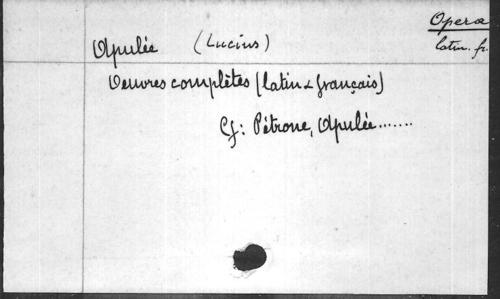 Opera
latin. fr.
Apulée (Lucius)
Oeuvres complètes (latin & français)
Cf: Pétrone, Apulée.......